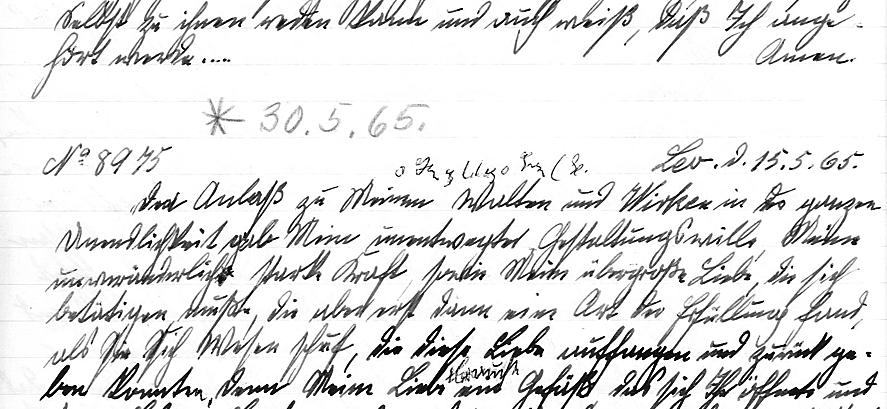 Selbst zu ihnen reden kann und auch weiß, daß Ich ange-
hört werde....                    Amen.
* 30.5.65.
Nº 8975                    Leo. d. 15.5.65.
Der Anlaß zu Meinem Walten und Wirken in der ganzen
Unendlichkeit gab Mein unentwegter Gestaltungswille, Meine
unveränderlich starke Kraft, sowie Meine übergroße Liebe, die sich
betätigen mußte, die aber erst dann eine Art der Erfüllung fand,
als Sie Sich Wesen schuf, die diese Liebe auffangen und zurück ge-
ben konnten, denn Meine Liebe braucht ein Gefäß das sich Ihr öffnete und